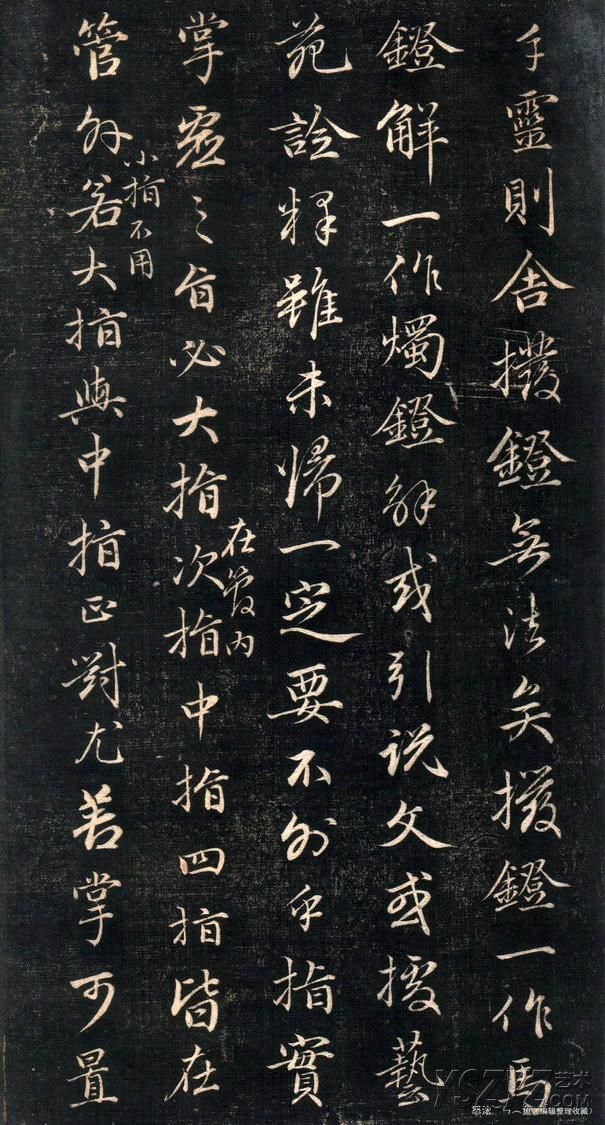 手靈則舍撥鐙無法矣撥鐙一作馬
鐙解一作燭鐙解或引說文或援藝
苑詮釋雖未歸一定要不外乎指實
掌虛之旨必大指次指中指四指皆在
在管内
管外若大指與中指正對尤善掌可置
小指不用
艺术
.COM
编辑整理收藏）